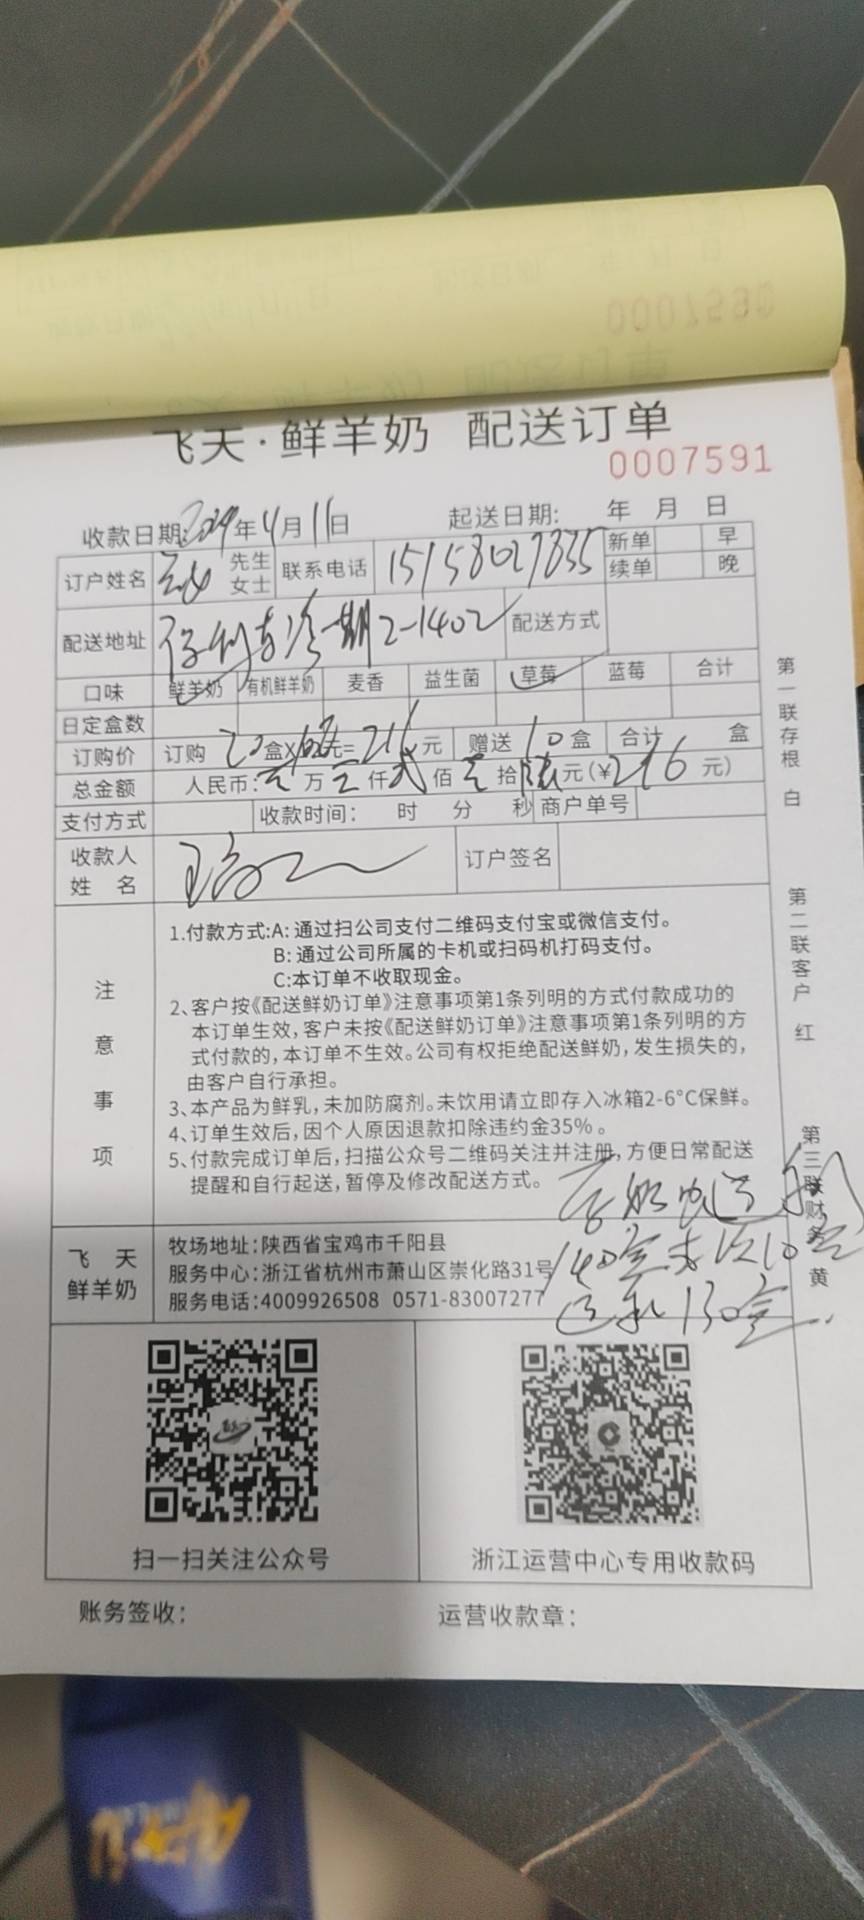 飞天·鲜羊奶 配送订单
0007591
收款日期: 2024年4月11日 起送日期: 年 月 日
订户姓名 先生 女士 联系电话 15158027835 新单 早
续单 晚
配送地址 保利 一期2-1402 配送方式
口味 鲜羊奶 有机鲜羊奶 麦香 益生菌 草莓 蓝莓 合计
日定盒数
订购价 订购 20盒X 元=216元 赠送 10盒 合计 盒
总金额 人民币: 万 仟贰佰壹拾陆元(¥216元)
支付方式 收款时间: 时 分 秒 商户单号
收款人姓名 订户签名
注意事项
1.付款方式:A:通过扫公司支付二维码支付宝或微信支付。
B:通过公司所属的卡机或扫码机打码支付。
C:本订单不收取现金。
2、客户按《配送鲜奶订单》注意事项第1条列明的方式付款成功的
本订单生效,客户未按《配送鲜奶订单》注意事项第1条列明的方
式付款的,本订单不生效。公司有权拒绝配送鲜奶,发生损失的,
由客户自行承担。
3、本产品为鲜乳,未加防腐剂。未饮用请立即存入冰箱2-6°C保鲜。
4、订单生效后,因个人原因退款扣除违约金35%。
5、付款完成订单后,扫描公众号二维码关注并注册,方便日常配送
提醒和自行起送,暂停及修改配送方式。
飞天鲜羊奶
牧场地址:陕西省宝鸡市千阳县
服务中心:浙江省杭州市萧山区崇化路31号
服务电话:4009926508 0571-83007277
140盒 10盒
130盒.
扫一扫关注公众号
浙江运营中心专用收款码
账务签收: 运营收款章:
第一联存根 白
第二联客户 红
第三联财务 黄